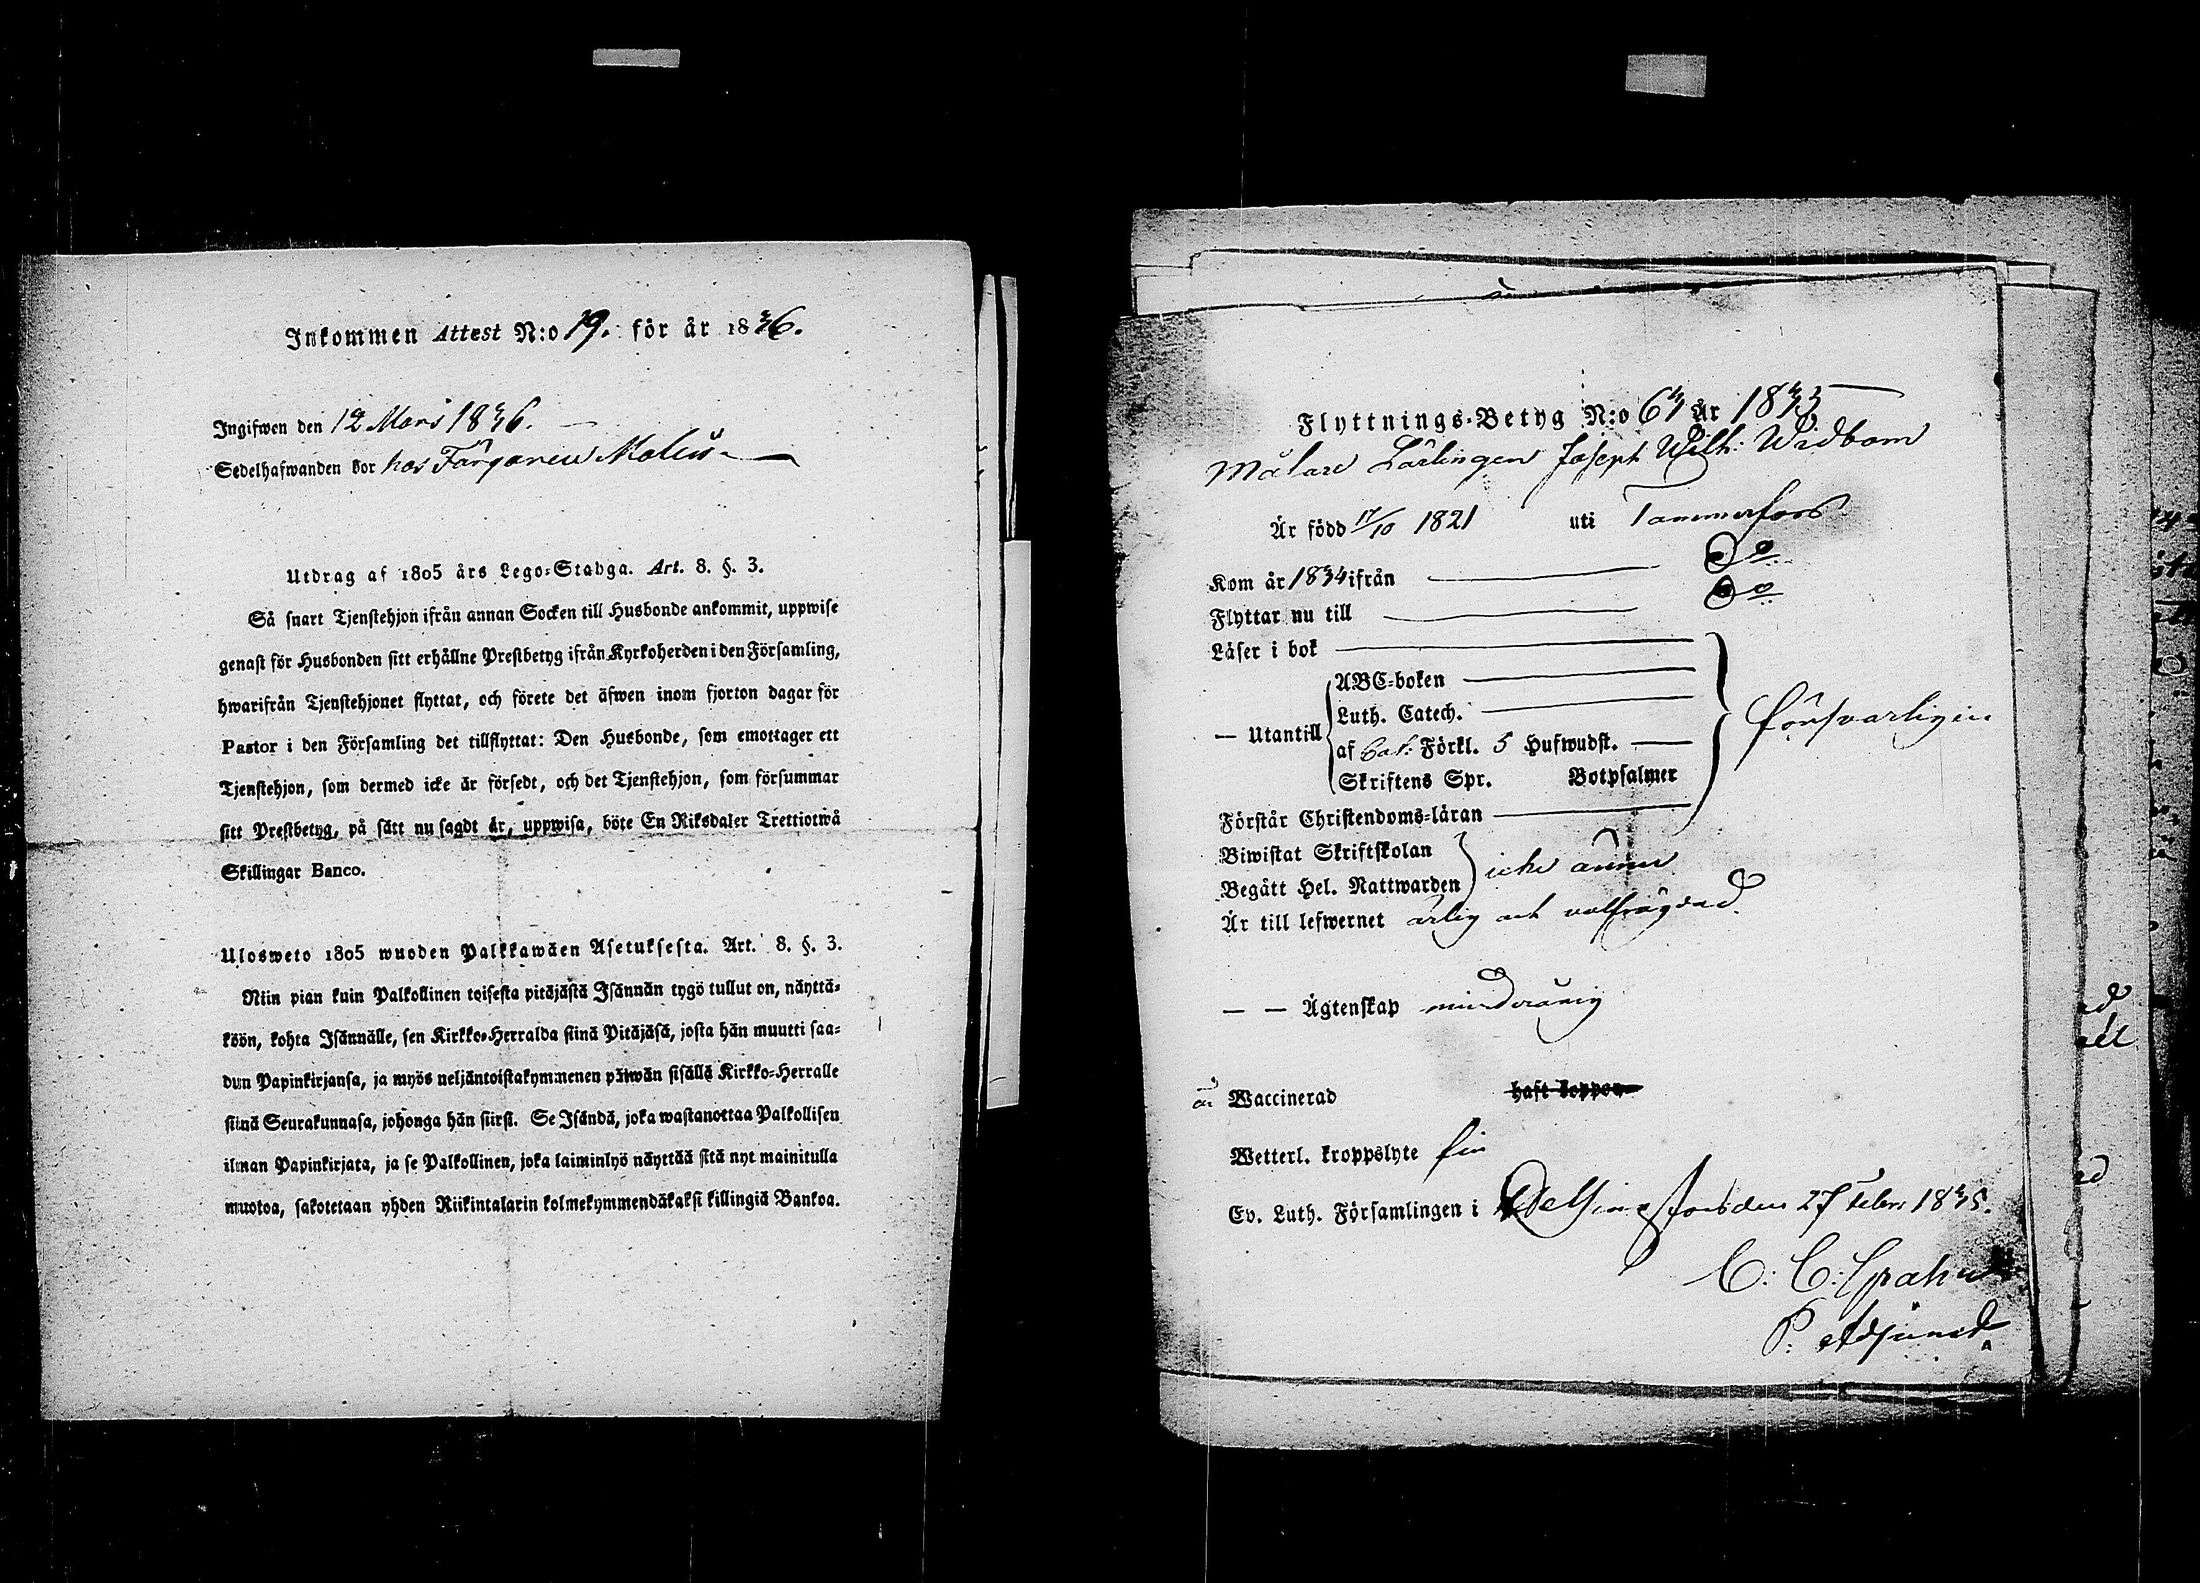 Inkommen Attest N:o 19. för år 1836.
Ingifwen den 12 Mars 1836.
Sedelhafwanden bor hos Färgaren Molin
Utdrag af 1805 års Lego-Stadga. Art. 8. §. 3.
Så snart Tjenstehjon ifrån annan Socken till Husbonde ankommit, uppwise
genast för Husbonden sitt erhållne Prestbetyg ifrån Kyrkoherden i den Församling,
hwarifrån Tjenstehjonet flyttat, och förete det äfwen inom fjorton dagar för
Pastor i den Församling det tillflyttat: Den Husbonde, som emottager ett
Tjenstehjon, som dermed icke är försedt, och det Tjenstehjon, som försummar
sitt Prestbetyg, på sätt nu sagdt är, uppwisa, böte En Riksdaler Trettiotwå
Skillingar Banco.
Ulosweto 1805 wuoden Palkkawäen Asetuksesta. Art. 8. §. 3.
Niin pian kuin Palkollinen toisesta pitäjästä Isännän tygö tullut on, näyttä-
köön, kohta Isännälle, sen Kirkko-Herralda siinä Pitäjäsä, josta hän muutti saa-
dun Papinkirjansa, ja myös neljäntoistakymmenen päiwän sisällä Kirkko-Herralle
siinä Seurakunnasa, johonga hän siirsi. Se Isändä, joka wastanottaa Palkollisen
ilman Papinkirjata, ja se Palkollinen, joka laiminlyö näyttää sitä nyt mainitulla
muotoa, sakotetaan yhden Riikintalarin kolmekymmendäkaksi killingiä Bankoa.
Flyttnings-Betyg N:o 63 År 1835
Målare Lärlingen Joseph Wilh: Widbom
Är född 17/10 1821 uti Tammerfors
Kom år 1834 ifrån Do
Flyttar nu till Do
Läser i bok
ABC-boken
Luth. Catech.
— Utantill af Cat: Förkl. 5 Hufwudst. försvarligen
Skriftens Spr. Botpsalmer
Förstår Christendoms-läran
Biwistat Skriftskolan
Begått Hel. Nattwarden icke ännu
Är till lefwernet ärlig och välfrägdad
— — Ägtenskap minderårig
är Waccinerad haft koppor
Wetterl. kroppslyte fri
Ev. Luth. Församlingen i Helsingfors den 27 Febr: 1835.
C: C:
P. Adjunct